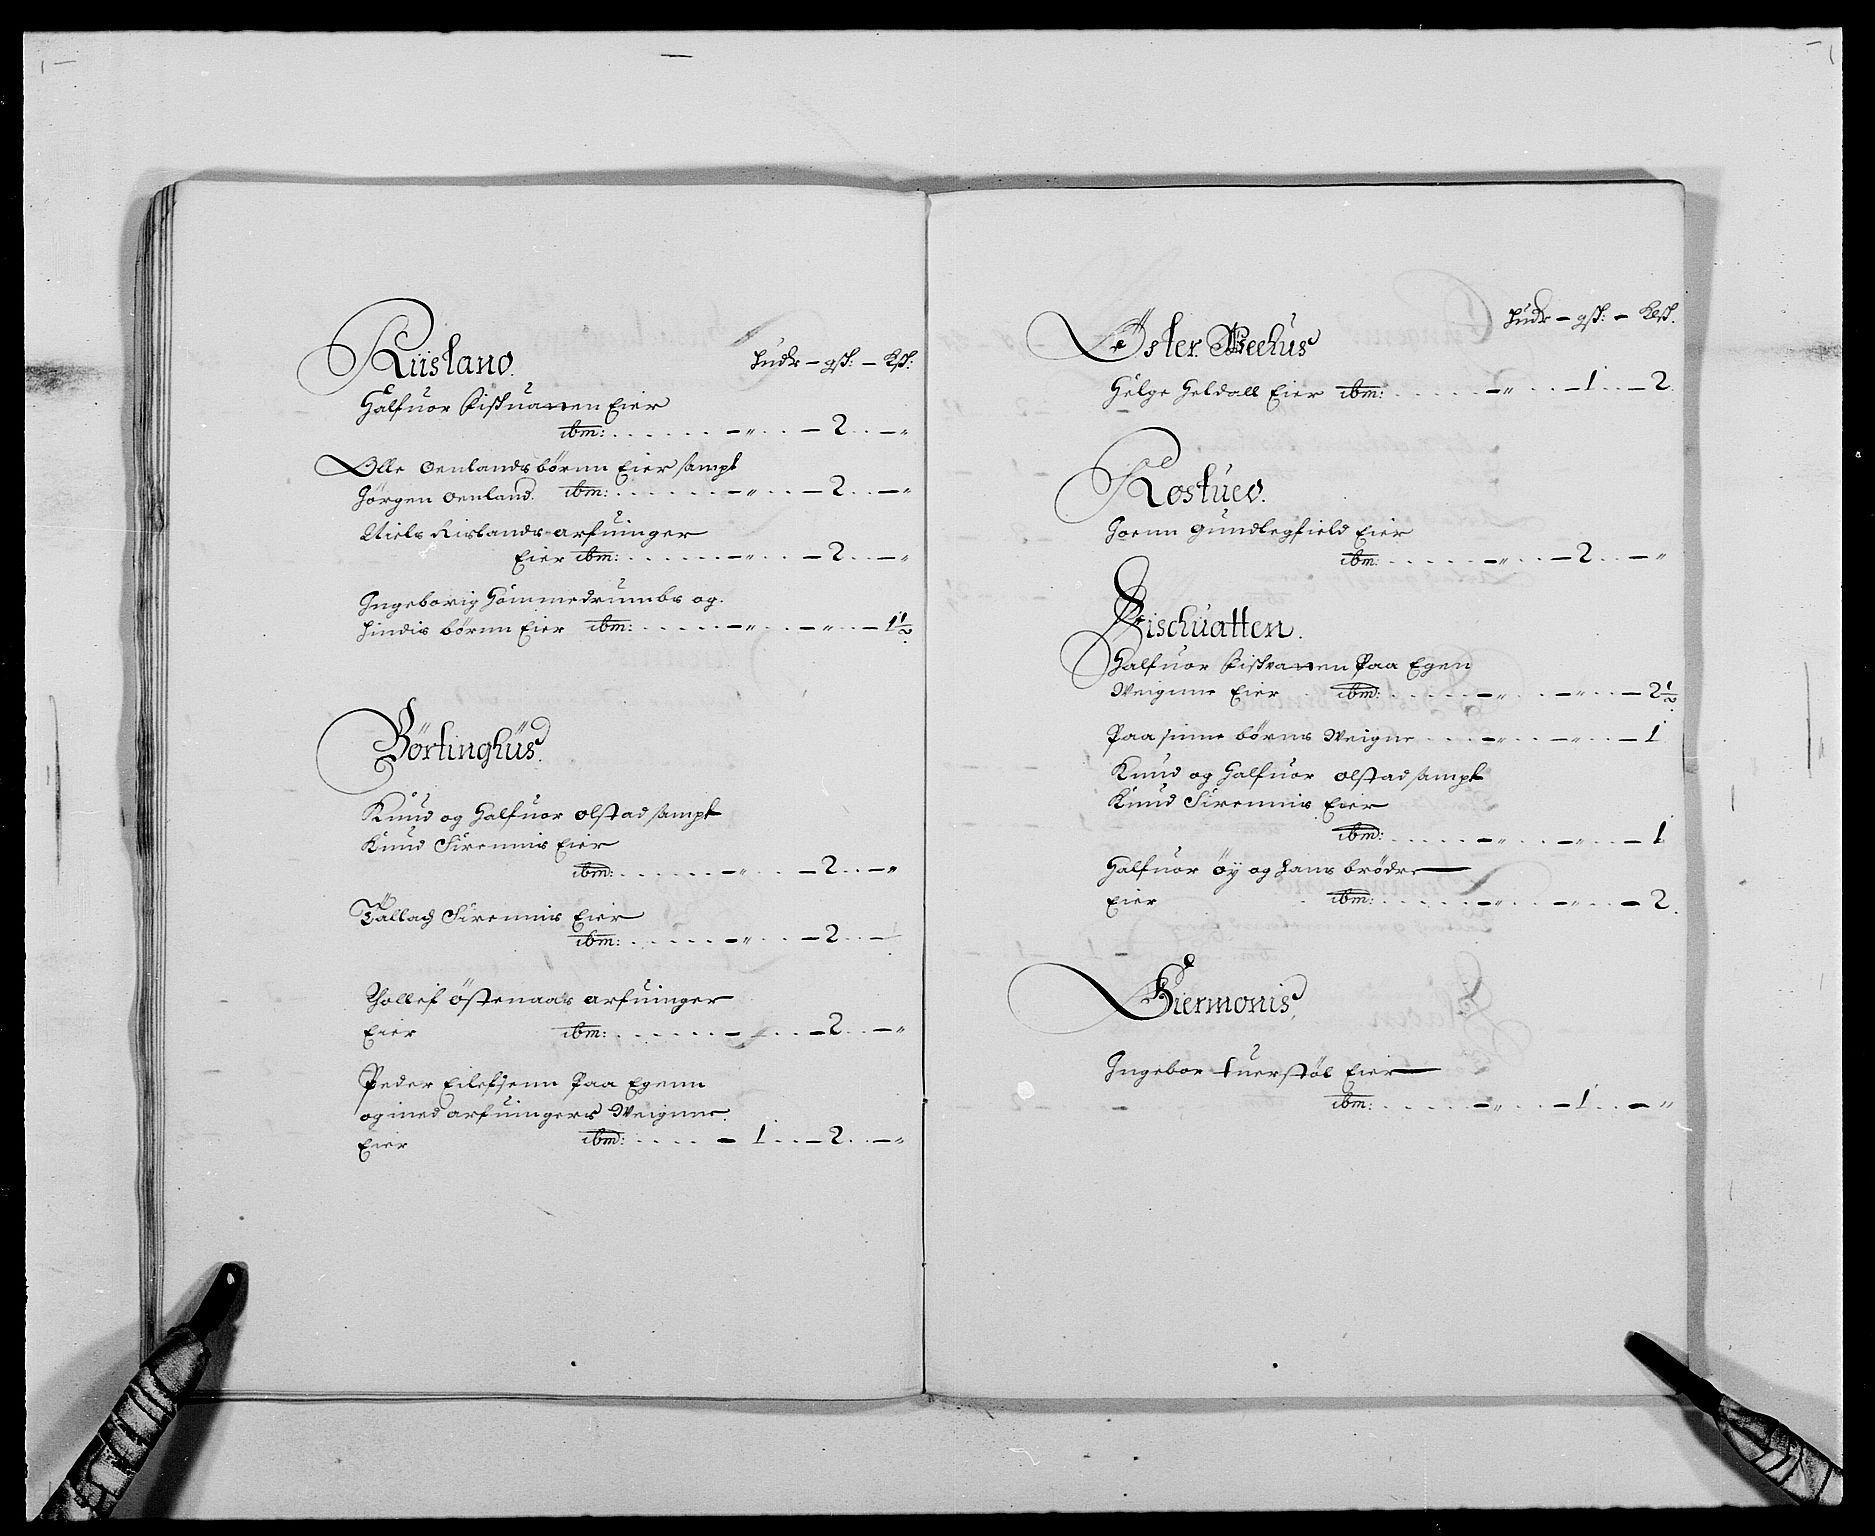 Riisland.
Hudr – gsk: – Ksk:
Halfuor Fiskuatten Eier
ibm: . . . . . . – „ . . . – 2 . . – „
Olle Oenlands børnn Eier sampt
Jørgen Oenland. ibm: . . . . . . – „ . . . – 2 . . – „
Niels Rislands arfuinger
Eier ibm: . . . . . . – „ . . . – 2 . . – „
Ingeborig Hommedrumbs og
hindis børnn Eier ibm: . . . . . – „ . . . – „ . . – 1½
Börtinghüs.
Knud og Halfuor Olstad sampt
Knud Sirennis Eier
ibm: . . . . . . – „ . . . – 2 . . – „
Tallach Sirennis Eier
ibm: . . . . . . – „ . . . – 2 . . –
Thollef Østenaas arfuinger
Eier ibm: . . . . . . – . . . – 2 . . – „
Peder Eilefsenn Paa Egenn
og med arfuingers Weignne
Eier ibm: . . . . . – 1 . . . – 2 . . – „
Hudr – gsk: – Ksk.
Øster Beehus
Helge Heldall Eier ibm: . . . . . – „ . . . – 1 . . – 2.
Rostued.
Joenn Gundlegfield Eier
ibm: . . . . . – „ . . . – 2 . . – „
Fischuatten.
Halfuor Fiskvatten Paa Egen
Weignne Eier ibm: . . . . . – „ . . . – „ . . – 2½
Paa sinne børns Weigne . . . . – „ . . . – „ . . – 1
Knud og Halfuor Olstad sampt
Knud Sirennis Eier
ibm: . . . . . – „ . . . – „ . . – 1
Halfuor Øÿ og hans brödre
Eier ibm: . . . . . – „ . . . – „ . . – 2.
Hiermonis.
Ingebor Tuerstøl Eier
ibm: . . . . . – „ . . . – 1 . . – „